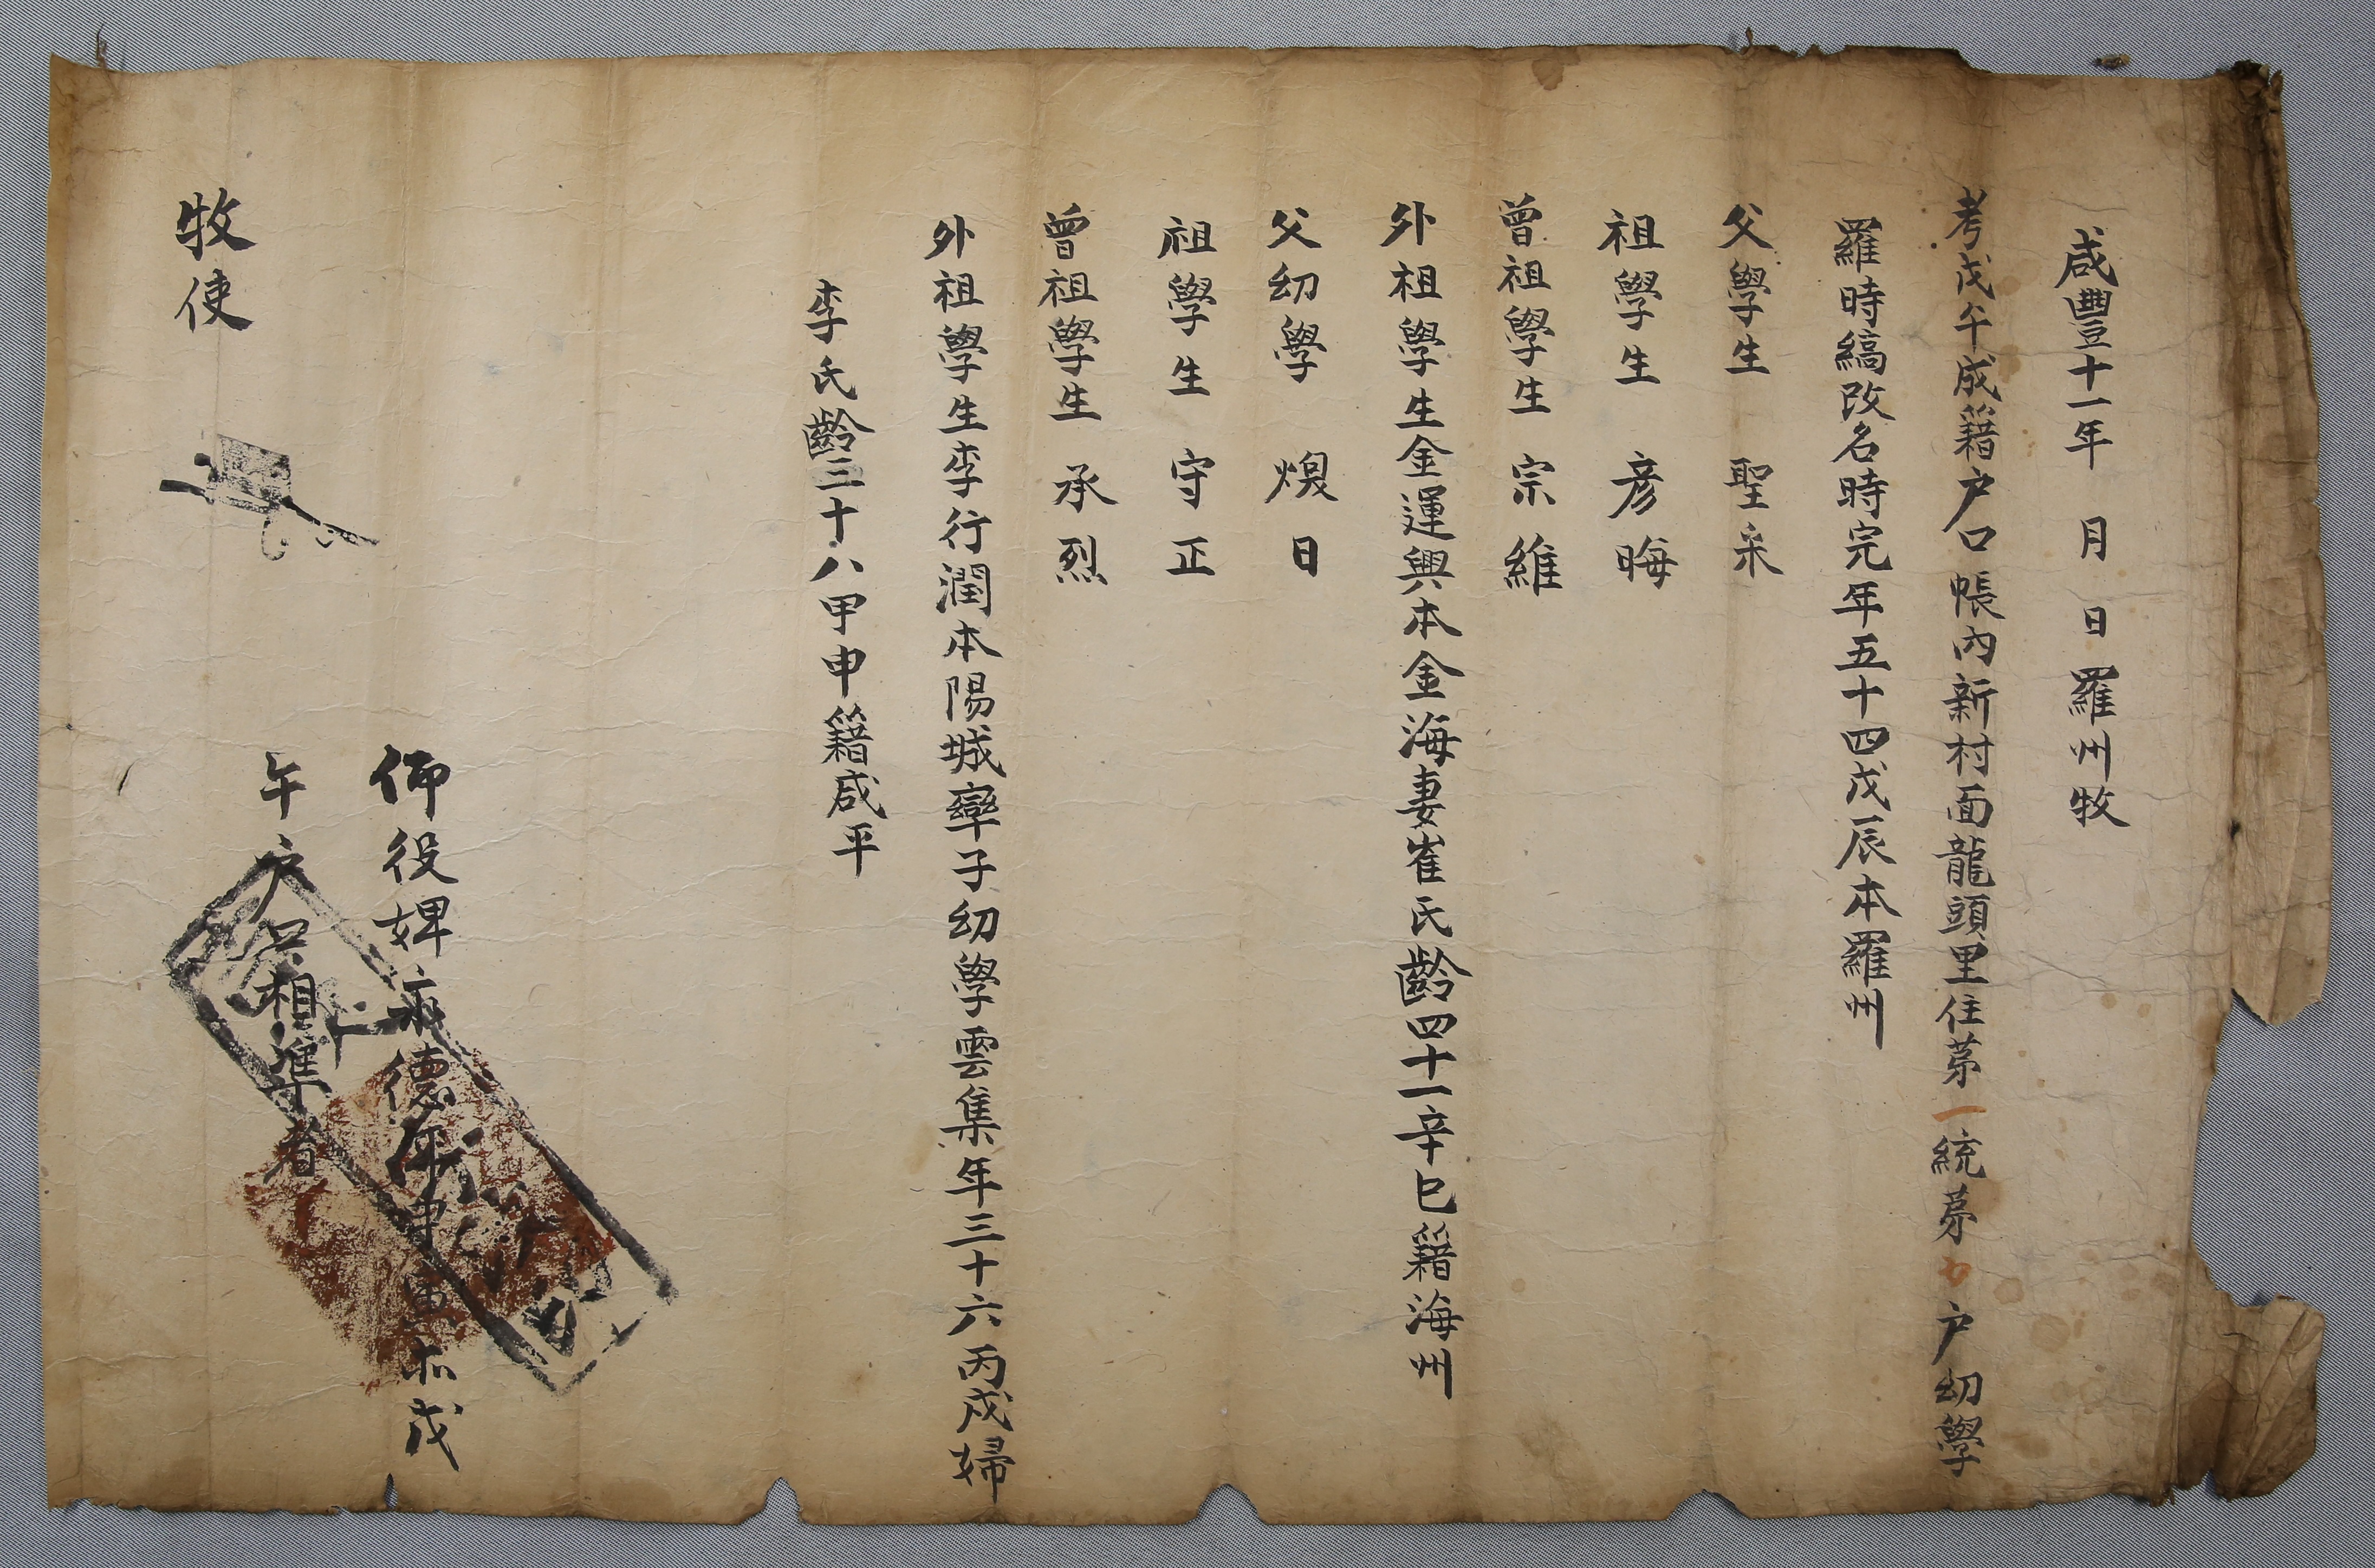 咸豐十一年 月 日 羅州牧
考戊午成籍户口帳內新村面龍頭里住苐一統苐 户幼學
羅時縞改名時完年五十四戊辰本羅州
父學生 聖采
祖學生 彦晦
曾祖學生 宗維
外祖學生金運興本金海妻崔氏齡四十一辛巳籍海州
父幼學 煥日
祖學生 守正
曾祖學生 承烈
外祖學生李行潤本陽城率子幼學雲集年三十六丙戌婦
李氏齡三十八甲申籍咸平
仰役婢 德年 戊
午户口相準者
牧使